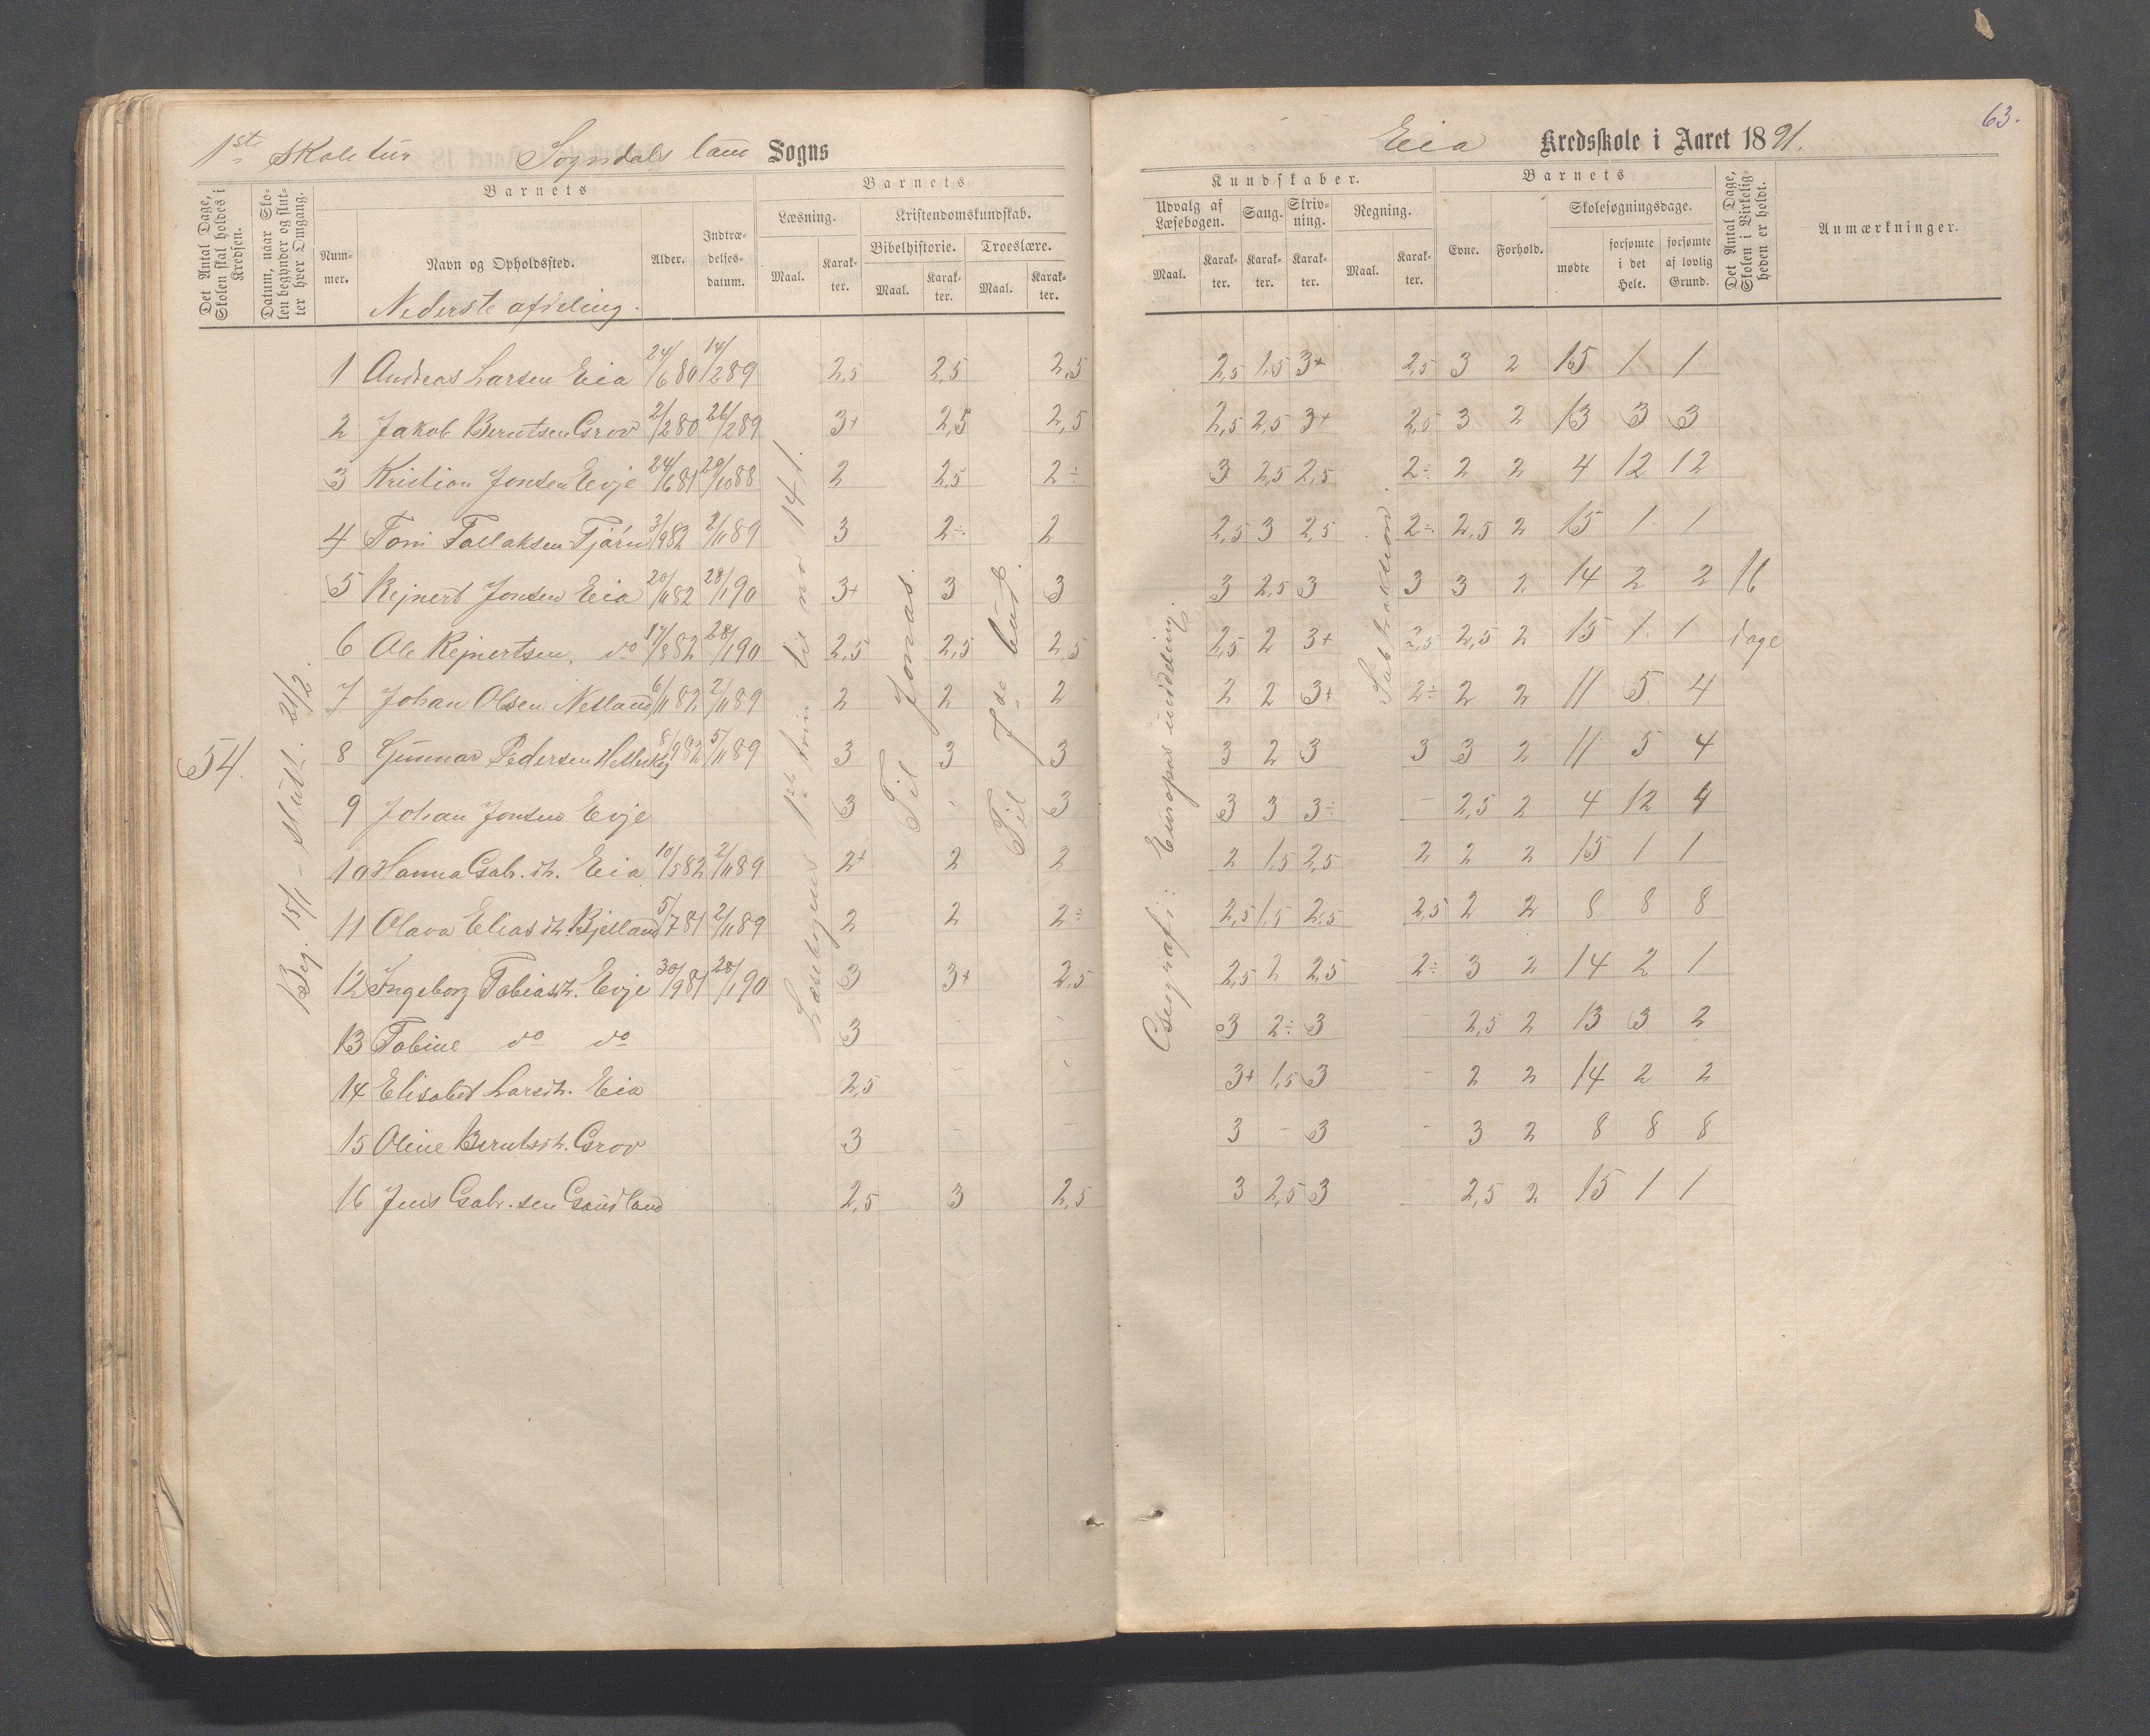 63.
1ste Skoletur Sogndals land Sogns Eia Kredsskole i Aaret 1891.
Det Antal Dage, Skolen skal holdes i Kredsen.
Datum, naar Skolen begynder og slutter hver Omgang.
Barnets
Nummer.
Navn og Opholdssted.
Alder.
Indtrædelsesdatum.
Barnets
Læsning.
Maal.
Karakter.
Kristendomskundskab.
Bibelhistorie.
Maal.
Karakter.
Troeslære.
Maal.
Karakter.
Kundskaber.
Udvalg af Læsebogen.
Maal.
Karakter.
Sang.
Karakter.
Skrivning.
Karakter.
Regning.
Maal.
Karakter.
Barnets
Evne.
Forhold.
Skolesøgningsdage.
mødte
forsømte i det Hele.
forsømte af lovlig Grund.
Det Antal Dage, Skolen i Virkeligheden er holdt.
Anmærkninger.
Nederste afdeling.
54.
Beg. 15/1 - slutt. 21/2.
Læsebogens 1ste trin til no 141.
Til Jonas.
Til 7de bud.
Geografi: Europas inddeling.
Subtraktion.
1 Andreas Larsen Eia 24/6 80 14/2 89 2,5 2,5 2,5 2,5 1,5 3+ 2,5 3 2 15 1 1
2 Jakob Berntsen Grov 2/2 80 26/2 89 3+ 2,5 2,5 2,5 2,5 3+ 2,5 3 2 13 3 3
3 Kristian Jonsen Evje 24/6 81 29/10 88 2 2,5 2÷ 3 2,5 2,5 2÷ 2 2 4 12 12
4 Tom Tallaksen Tjørn 3/9 82 2/11 89 3 2÷ 2 2,5 3 2,5 2÷ 2,5 2 15 1 1
5 Rejnert Jonsen Eia 20/11 82 28/1 90 3+ 3 3 3 2,5 3 3 3 2 14 2 2 16
6 Ole Rejnertsen. do 17/8 82 28/1 90 2,5 2,5 2,5 2,5 2 3+ 2,5 2,5 2 15 1 1 dage
7 Johan Olsen Netland 6/11 82 2/11 89 2 2 2 2 2 3+ 2÷ 2 2 11 5 4
8 Gunnar Pedersen 8/9 82 5/11 89 3 3 3 3 2 3 3 3 2 11 5 4
9 Johan Jonsen Evje 3 - 3 3 3 3÷ - 2,5 2 4 12 4
10 Hanna Gab.dt. Eia 10/5 82 2/11 89 2+ 2 2 2 1,5 2,5 2 2 2 15 1 1
11 Olava Eliasdt. Bjelland 5/7 81 2/11 89 2 2 2÷ 2,5 1,5 2,5 2,5 2 2 8 8 8
12 Ingeborg Tobiasdt. Evje 30/9 81 28/1 90 3 3+ 2,5 2,5 2 2,5 2÷ 3 2 14 2 1
13 Tobine do do 3 - - 3 2÷ 3 - 2,5 2 13 3 2
14 Elisabet Larsdt. Eia 2,5 - - 3+ 1,5 3 - 2 2 14 2 2
15 Oline Berntsdt. Grov 3 - - 3 - 3 - 3 2 8 8 8
16 Jens Gab.sen Gaudland 2,5 3 2,5 3 2,5 3 - 2,5 2 15 1 1